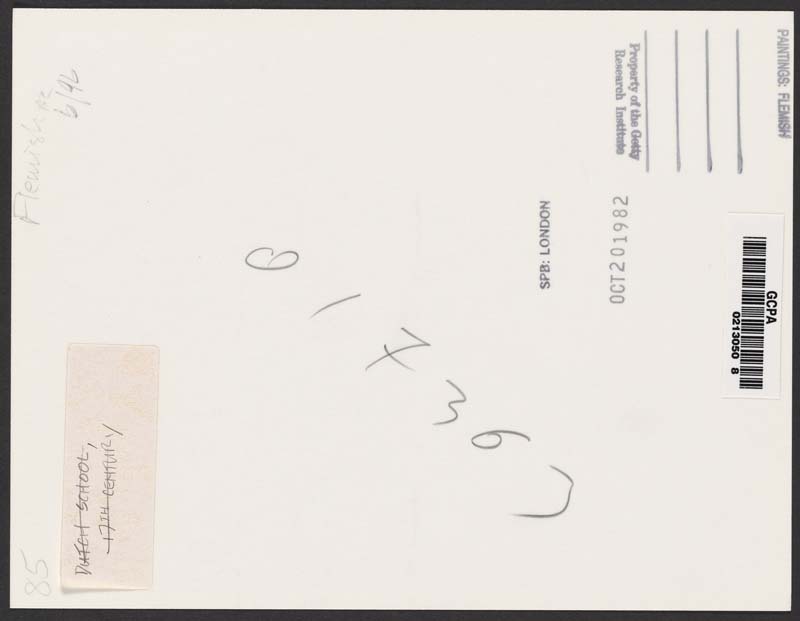 PAINTINGS: FLEMISH
Property of the Getty
Research Institute
OCT201982
SPB: LONDON
GCPA
0213050 8
Flemish
6/96
DUTCH SCHOOL,
17TH CENTURY
85